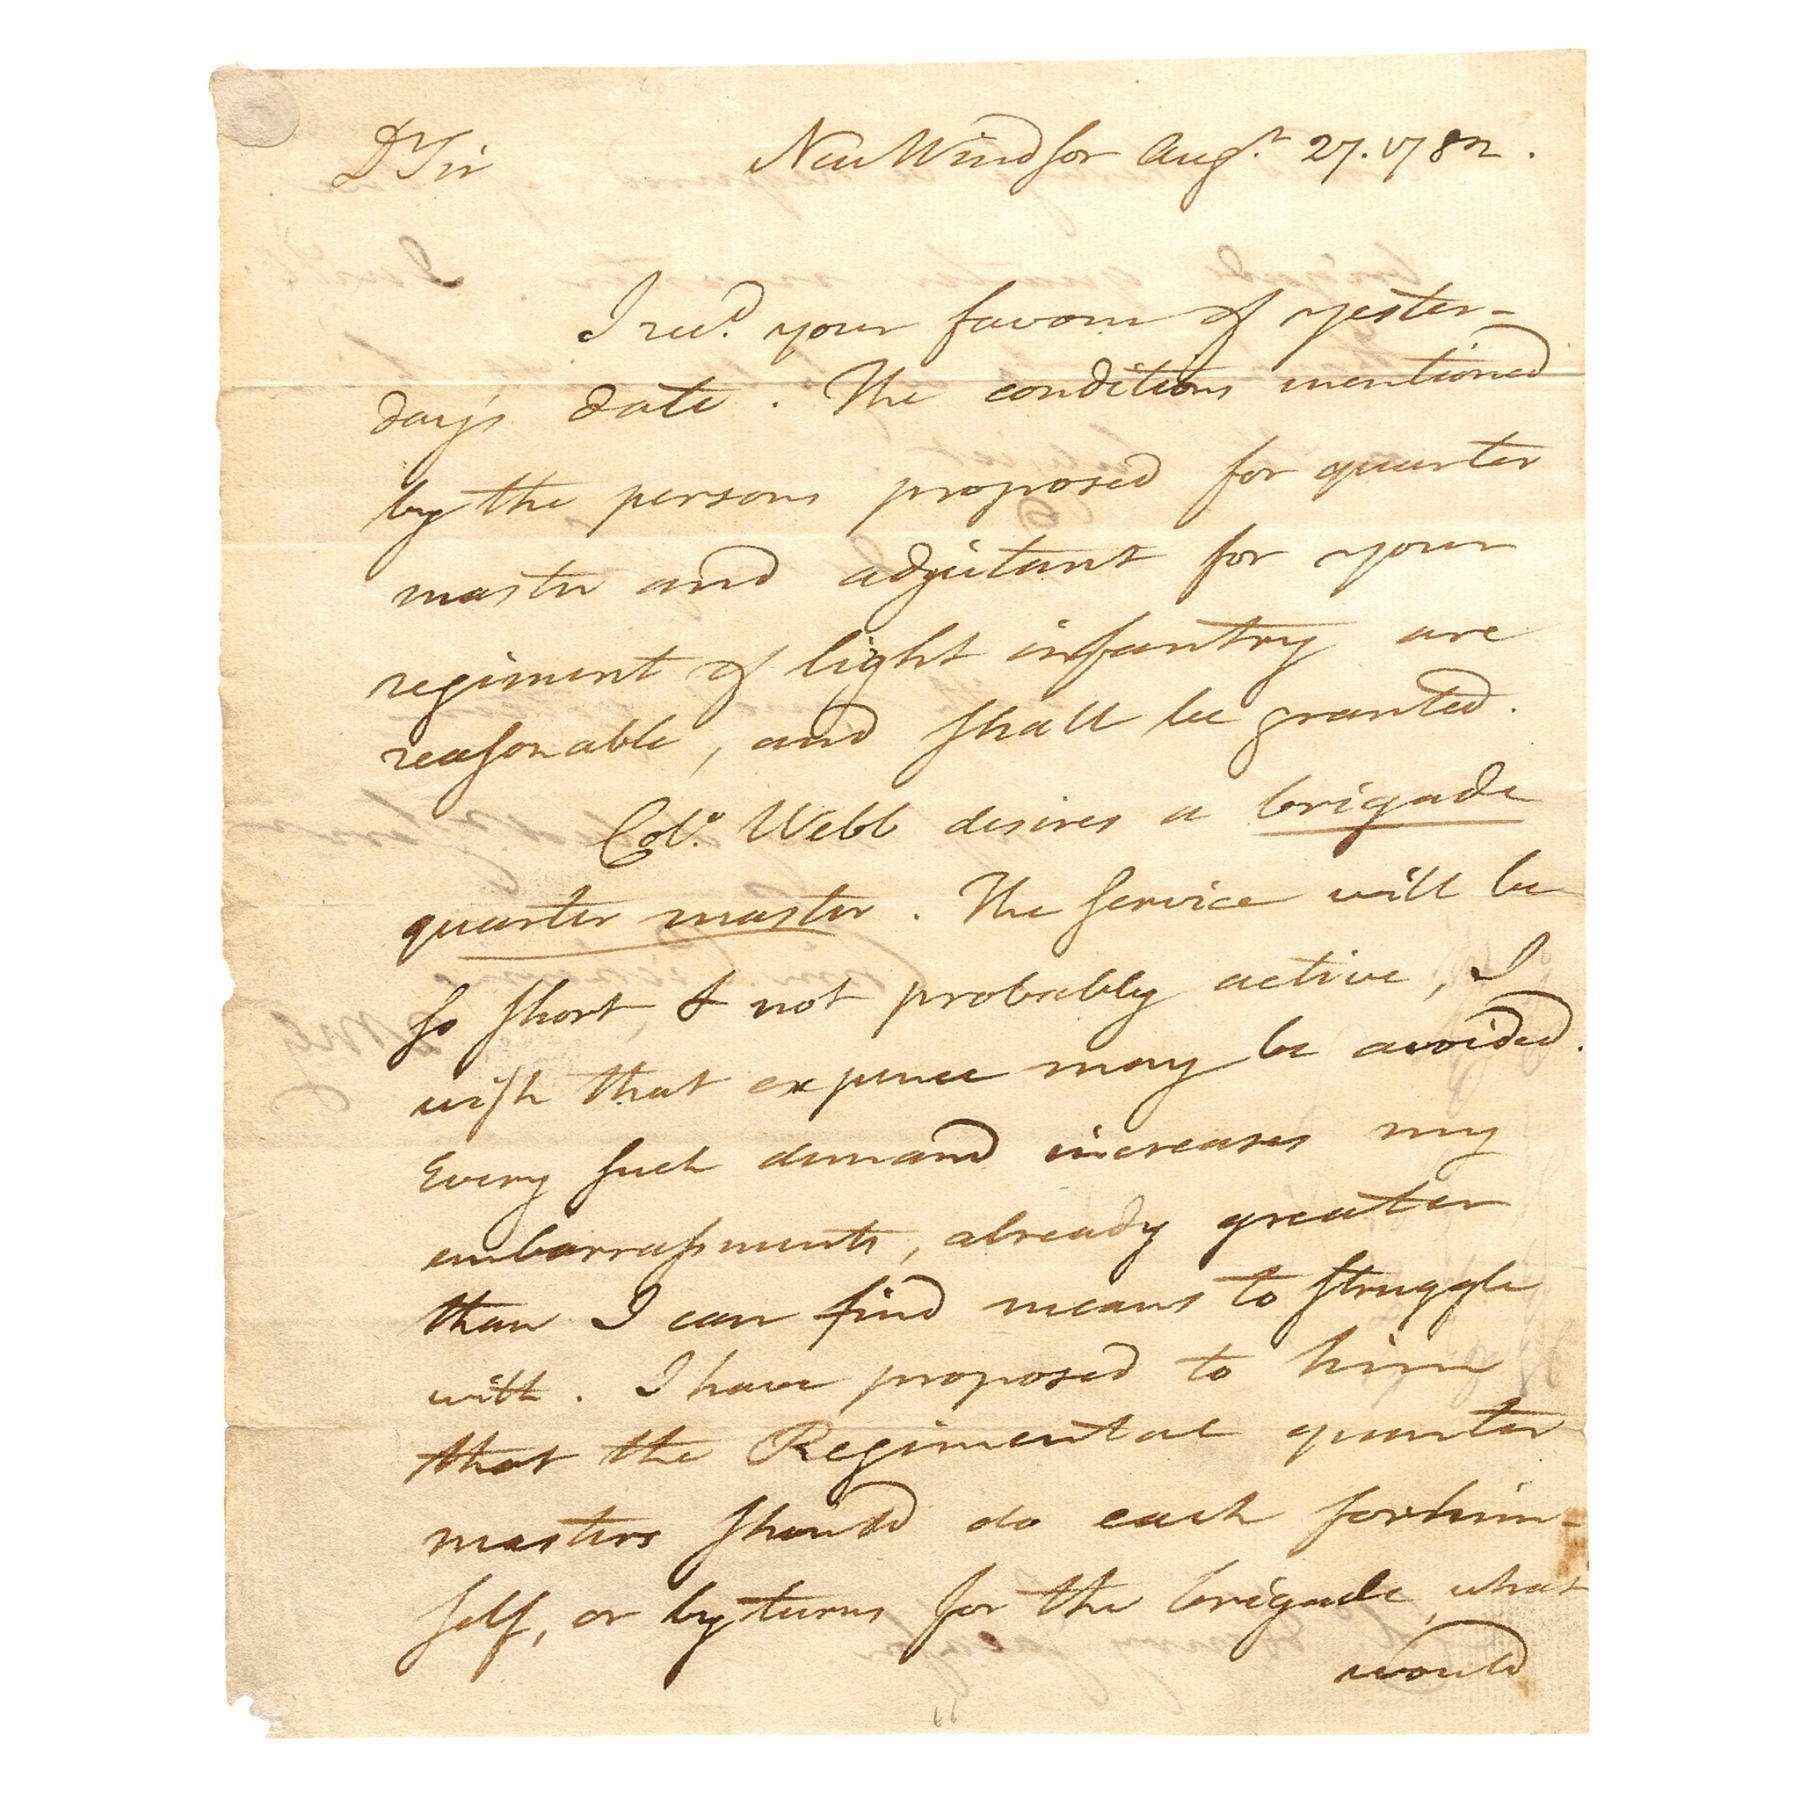 Dr Sir New Windsor Augt. 27. 1782.
I recd. your favour of yester-
day's date. The conditions mentioned
by the persons proposed for quarter
master and adjutant for your
regiment of light infantry are
reasonable, and shall be granted.
Colo. Webb desires a brigade
quarter master. The service will be
so short & not probably active, I
wish that expence may be avoided.
Every such demand increases my
embarrassments, already greater
than I can find means to struggle
with. I have proposed to him
that the Regimental quarter
masters should do each for him-
self, or by turns for the brigade, what
would